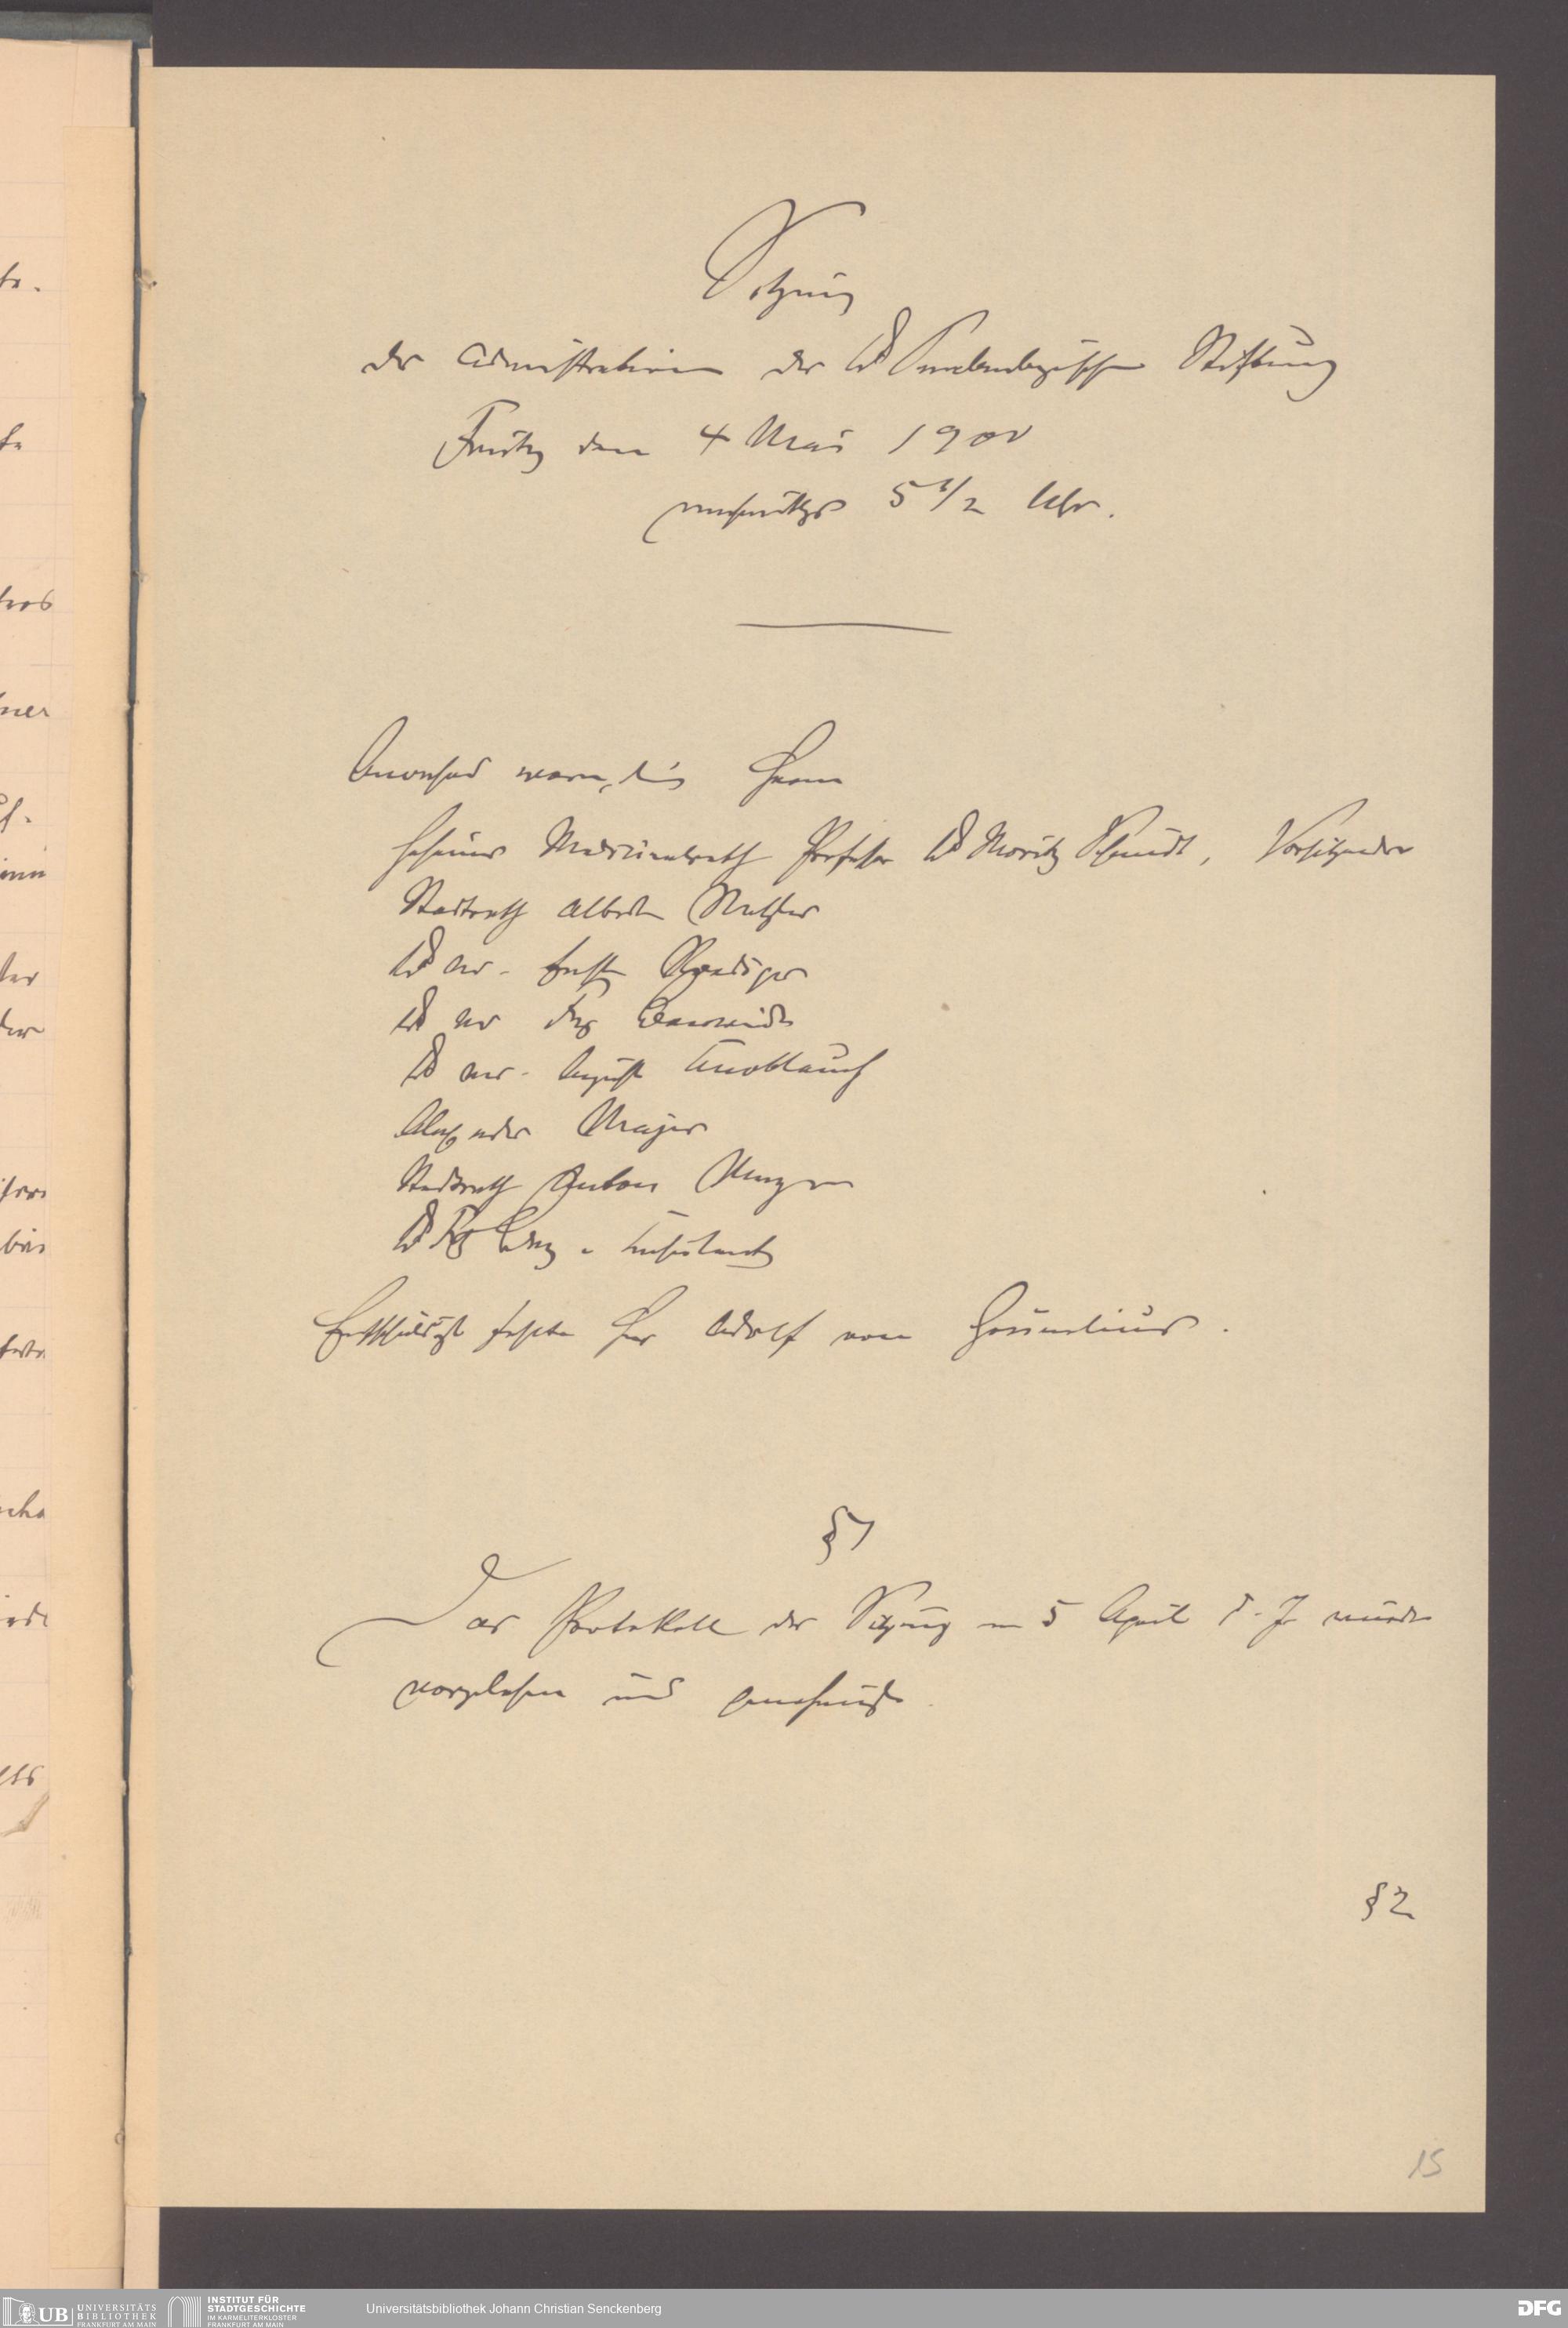 Sitzung
der Administration der Dr Senckenbergischen Stiftung
Freitag den 4 Mai 1900
nachmittags 5 1/2 Uhr.
Anwesend waren die Herrn
Geheimer Medicinalrath Professor Dr Moritz Schmidt, Vorsitzender
Stadtrath Albert Metzler
Dr med. Ernst Roediger
Dr med
Dr med. August Knoblauch
Alexander Majer
Stadtrath Anton
Dr
Entschuldigt fehlte Herr Adolf von Grunelius.
§ 1
Das Protokoll der Sitzung vom 5 April d. J. wurde
vorgelesen und genehmigt.
§ 2
15
UB UNIVERSITÄTS BIBLIOTHEK FRANKFURT AM MAIN
INSTITUT FÜR STADTGESCHICHTE IM KARMELITERKLOSTER FRANKFURT AM MAIN
Universitätsbibliothek Johann Christian Senckenberg
DFG